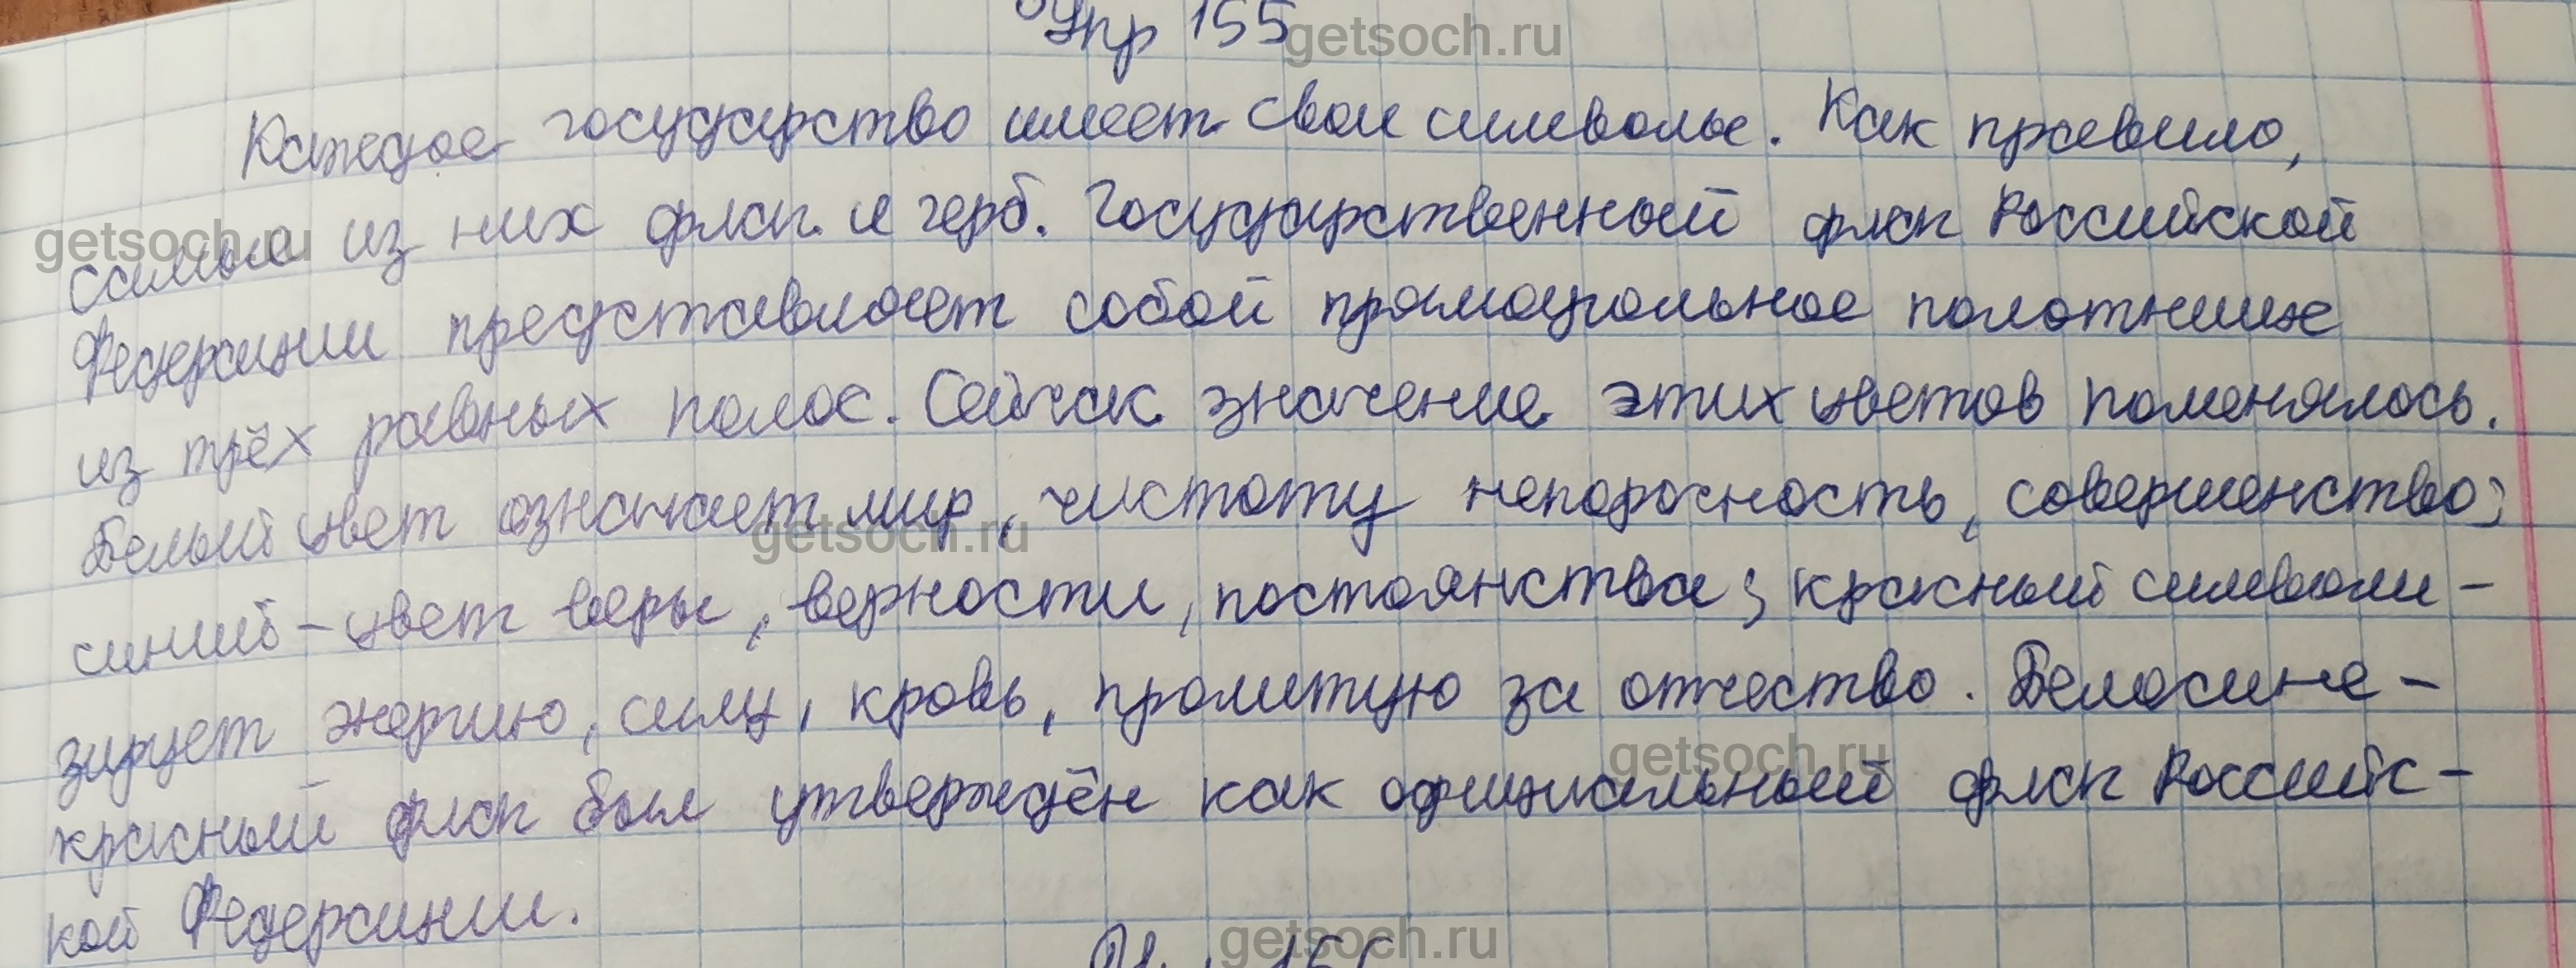 Упр 155
getsoch.ru
Каждое государство имеет свои символы. Как правило,
самые из них флаг и герб. Государственный флаг Российской
getsoch.ru
Федерации представляет собой прямоугольное полотнище
из трёх равных полос. Сейчас значение этих цветов поменялось.
Белый цвет означает мир, чистоту непорочность, совершенство;
getsoch.ru
синий – цвет веры, верности, постоянства; красный символи-
зирует энергию, силу, кровь, пролитую за отчество. Белосине-
getsoch.ru
красный флаг был утверждён как официальный флаг Российс-
кой Федерации.
getsoch.ru